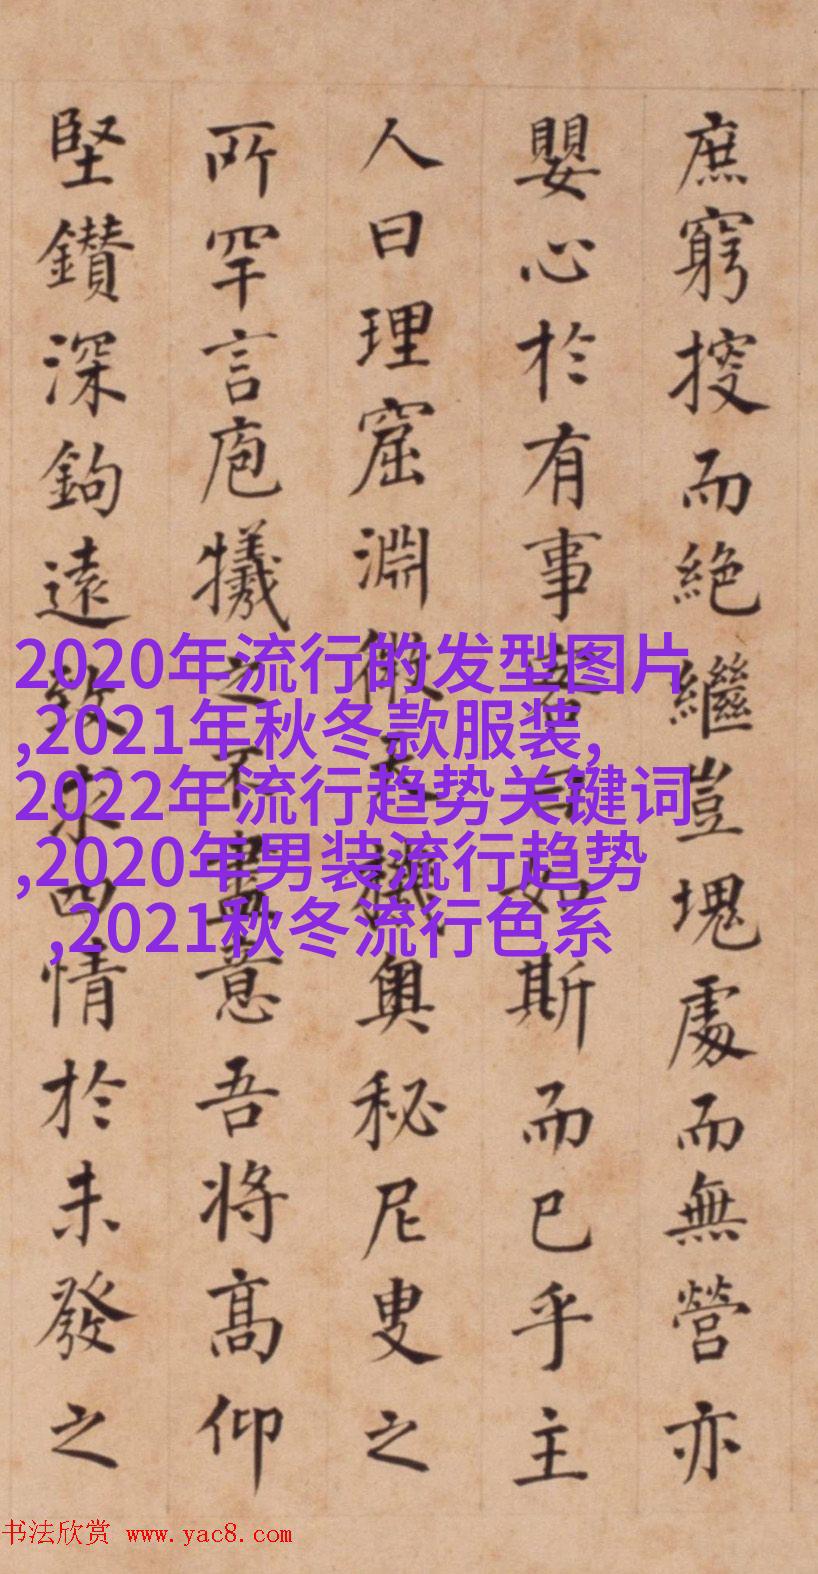 庶窮搜而絕繼豈塊處而無營亦
嬰心於有事如斯而已乎主
人曰理窟淵微奧秘尼叟之
所罕言庖犧之不盡意吾將高仰
堅鑽深鉤遠致求四情於未發之
2020年流行的发型图片
,2021年秋冬款服装,
2022年流行趋势关键词
,2020年男装流行趋势
,2021秋冬流行色系
书法欣赏 www.yac8.com